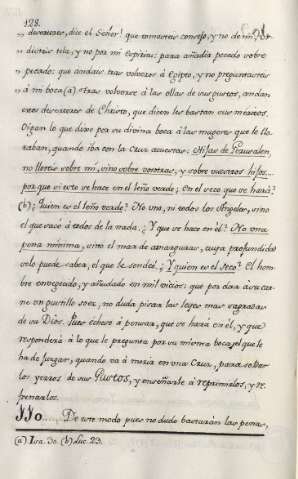 128.
desertores, dice el Señor! que tomasteis consejo, y no de mi, ur-
disteis tela, y no por mi espiritu: para añadir pecado sobre
pecado: que andais tras volveros á Egipto, y no preguntasteis
á mi boca (a) tras volverse á las ollas de sus gustos, andan
estos desertores de Christo, que dicen les bastan sus meritos.
Oigan lo que dixo por su divina boca á las mugeres que le llo-
raban, quando iba con la Cruz acuestas: Hijas de Jerusalen,
no lloreis sobre mi, sino sobre vosotras, y sobre vuestros hijos...
porque si esto se hace en el leño verde; En el seco que se hará?
(b) ¿Quien es el leño verde? No una, ni todos los Angeles, sino
el que sacó á todos de la nada. ¿Y que se hace en él? No una
pena minima, sino el mar de amarguras, cuya profundidad
solo puede saber, el que le sondeó. ¿Y quien es el seco? El hom-
bre entregado, y añudado en mil vicios: que por dar á su car-
ne un gustillo soez, no duda pisar las leyes mas sagradas
de su Dios. Pues echese á pensar, que se hará en él, y que
responderá á lo que le pregunta por su misma boca, el que le
ha de juzgar, quando va á morir en una Cruz, para soldar
los yerros de sus Gustos, y enseñarle á reprimirlos, y re-
frenarlos.
110. De este modo pues no dudo bastarán las penas,
(a) Isa. 30. (b) Luc. 23.